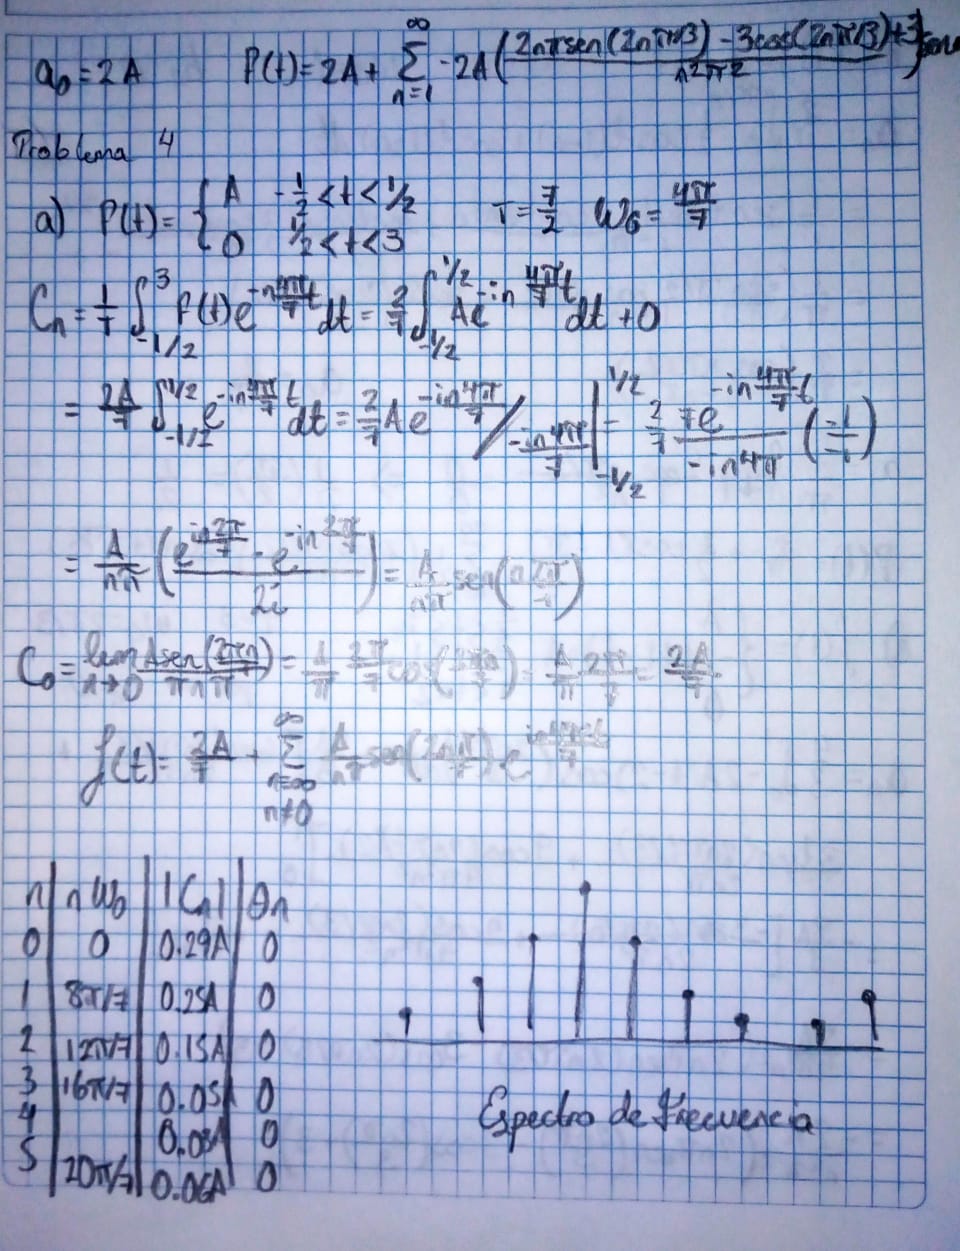 a₀ = 2A    f(t) = 2A + Σ_{n=1}^{∞} -2A ( (2nπ sen(2nπ/3) - 3cos(2nπ/3) + 3) / n²π² )
Problema 4
a) f(t) = { A   -1/2 < t < 1/2    T = 7/2   W₀ = 4π/7
0   1/2 < t < 3
Cn = 1/T ∫_{-1/2}^{3} f(t) e^{-n 4π/7 t} dt = 2/7 ∫_{-1/2}^{1/2} A e^{-in 4π/7 t} dt + 0
= 2A/7 ∫_{-1/2}^{1/2} e^{-in 4π/7 t} dt = 2/7 A e^{-in 4π/7} / (-in 4π/7) |_{-1/2}^{1/2} = 2/7 7e^{-in 4π/7 t} / (-in4π)
= A/nπ ( (e^{in 2π/7} - e^{-in 2π/7}) / 2i ) = A/nπ sen(n 2π/7)
C₀ = lim_{n→0} = 2A/7
f(t) = 2A/7 + Σ_{n=∞, n≠0}^{∞} A/nπ sen(2nπ/7) e
n | nW₀ | |Cn| | θn
0 | 0 | 0.29A | 0
1 | 8π/7 | 0.25A | 0
2 | 12π/7 | 0.15A | 0
3 | 16π/7 | 0.05A | 0
4 | | 0.03A | 0
5 | 20π/7 | 0.06A | 0
Espectro de Frecuencia